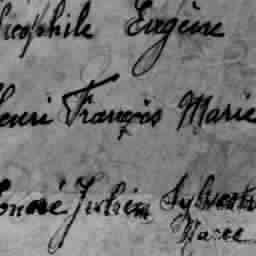 Théophile Eugène
Henri François Marie
Honoré Julien Sylvestre
Marie